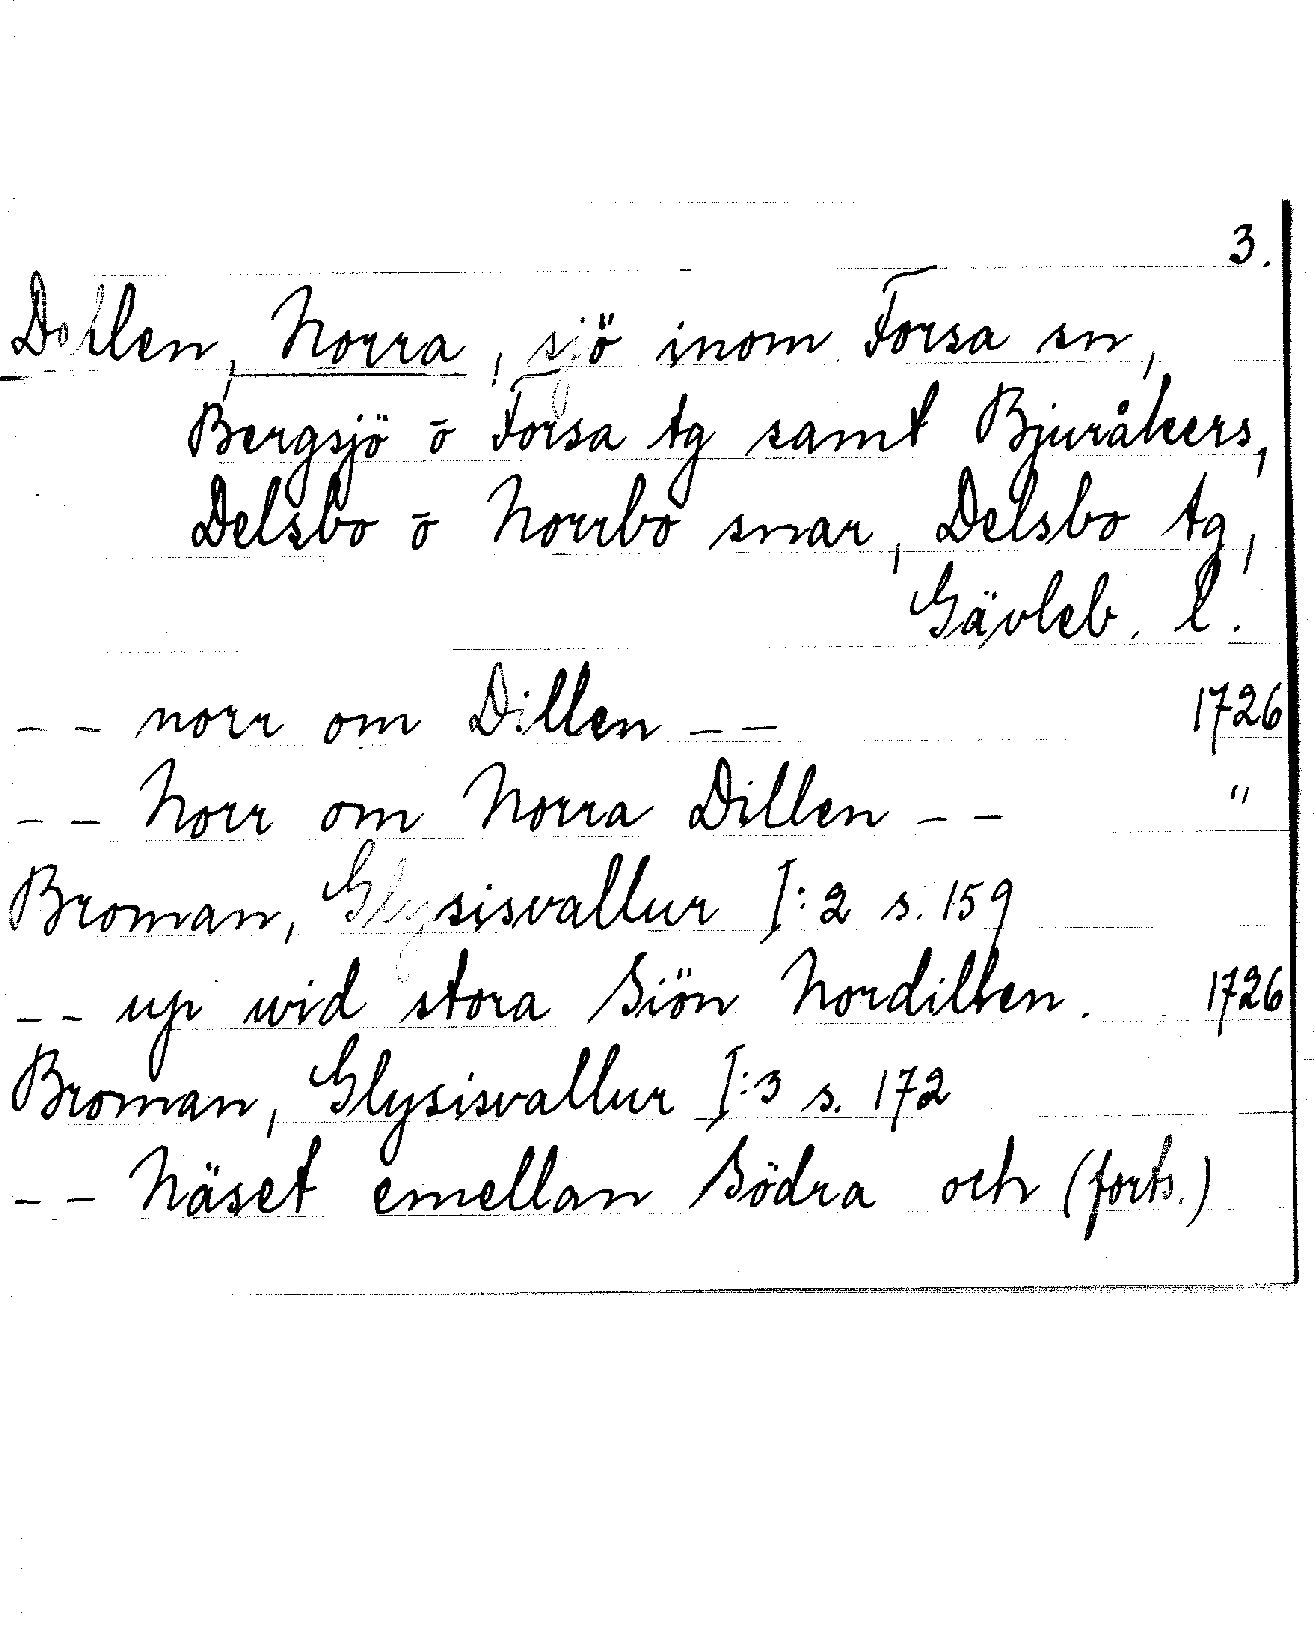 3.
Dellen, Norra, sjö inom Forsa sn,
Bergsjö o Forsa tg samt Bjuråkers,
Delsbo o Norrbo snar, Delsbo tg,
Gävleb. l.
-- norr om Dillen -- 1726
-- Norr om Norra Dillen -- "
Broman, Glysisvallur I:2 s. 159
-- up wid stora Siön Nordillen. 1726
Broman, Glysisvallur I:3 s. 172
-- Näset emellan Södra och (forts.)